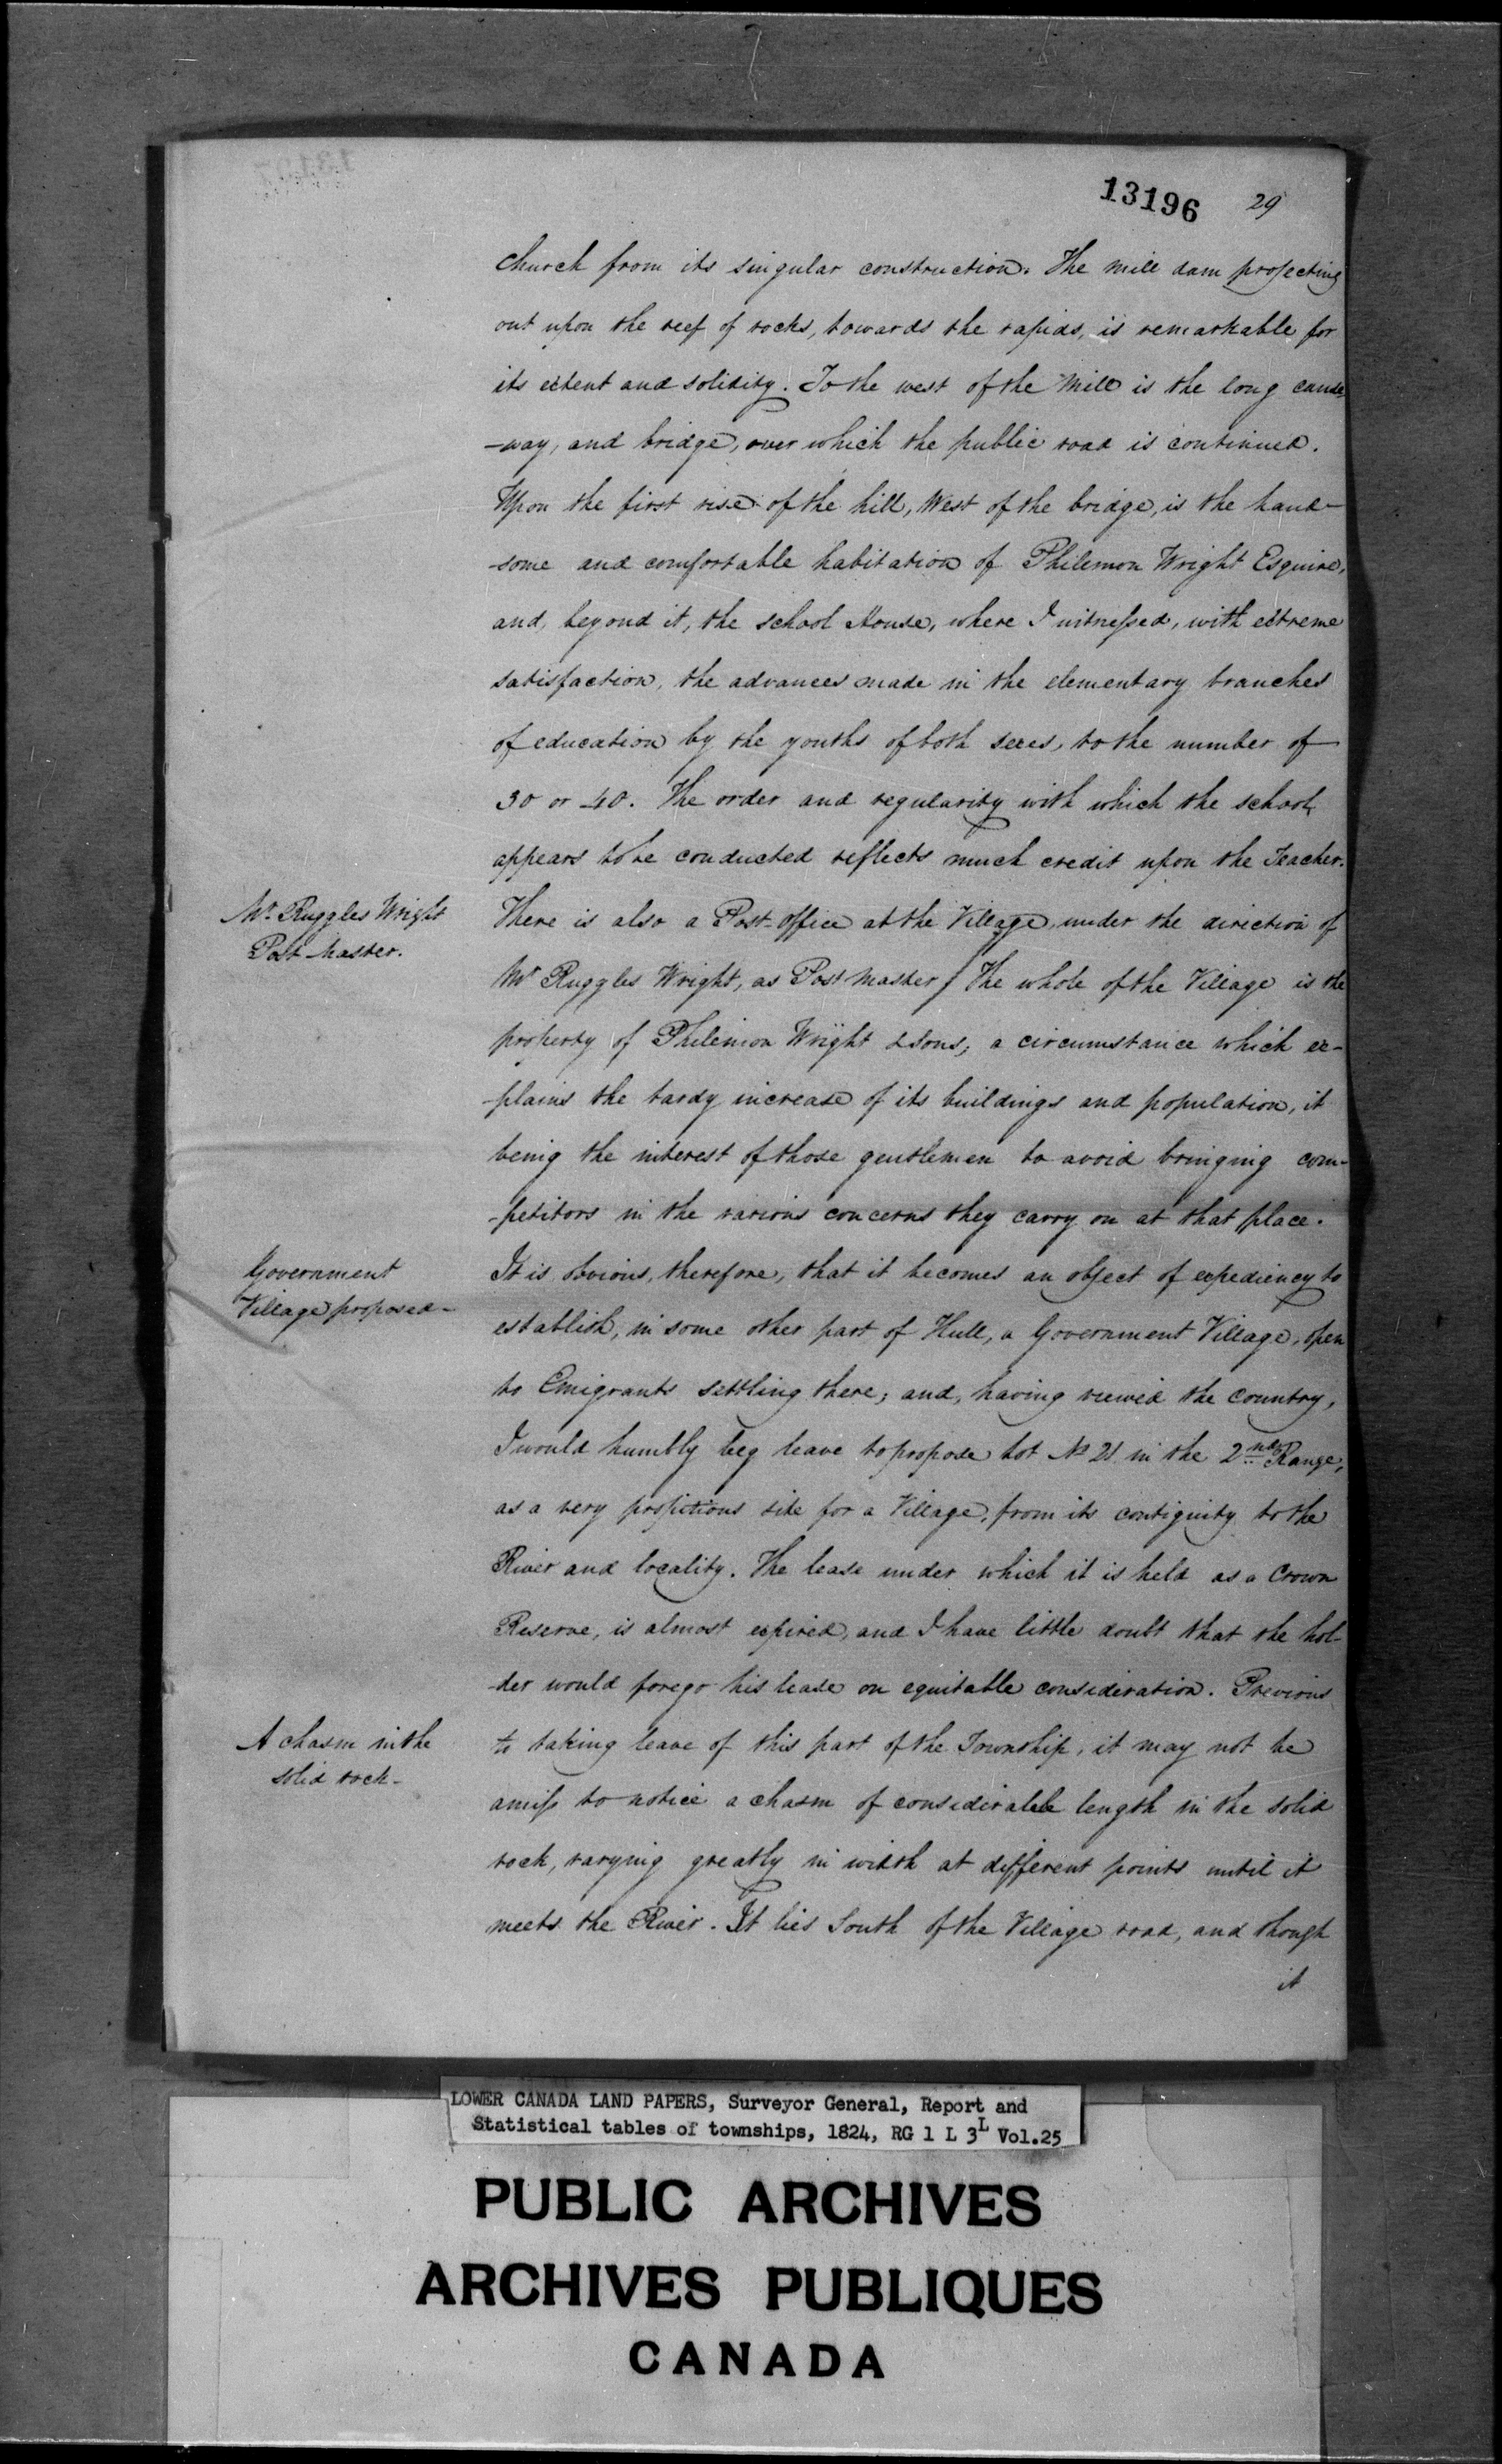 13196 29
church from its singular construction. The mill dam projecting
out upon the reef of rocks, towards the rapids, is remarkable for
its extent and solidity. To the west of the Mill is the long cause
-way, and bridge, over which the public road is continued.
Upon the first rise of the hill, West of the bridge, is the hand-
-some and comfortable habitation of Philemon Wright Esquire,
and, beyond it, the school House, where I witnessed, with extreme
satisfaction, the advances made in the elementary branches
of education by the youths of both sexes, to the number of
30 or 40. The order and regularity with which the school
appears to be conducted reflects much credit upon the Teacher.
Mr. Ruggles Wright
Post Master.
There is also a Post-office at the Village, under the direction of
Mr Ruggles Wright, as Post Master / The whole of the Village is the
property of Philemon Wright & Sons, a circumstance which ex-
-plains the tardy increase of its buildings and population, it
being the interest of those gentlemen to avoid bringing com-
-petitors in the various concerns they carry on at that place.
Government
Village proposed-
It is obvious, therefore, that it becomes an object of expediency to
establish, in some other part of Hull, a Government Village, open
to Emigrants settling there; and, having viewed the country,
I would humbly beg leave to propose Lot No 21 in the 2nd Range,
as a very propitious site for a Village, from its contiguity to the
River and locality. The lease under which it is held as a Crown
Reserve, is almost expired, and I have little doubt that the hol-
-der would forego his lease on equitable consideration. Previous
A chasm in the
solid rock-
to taking leave of this part of the Township, it may not be
amiss to notice a chasm of considerable length in the solid
rock, varying greatly in width at different points until it
meets the River. It lies South of the Village road, and though
it
LOWER CANADA LAND PAPERS, Surveyor General, Report and
Statistical tables of townships, 1824, RG 1 L 3L Vol.25
PUBLIC ARCHIVES
ARCHIVES PUBLIQUES
CANADA